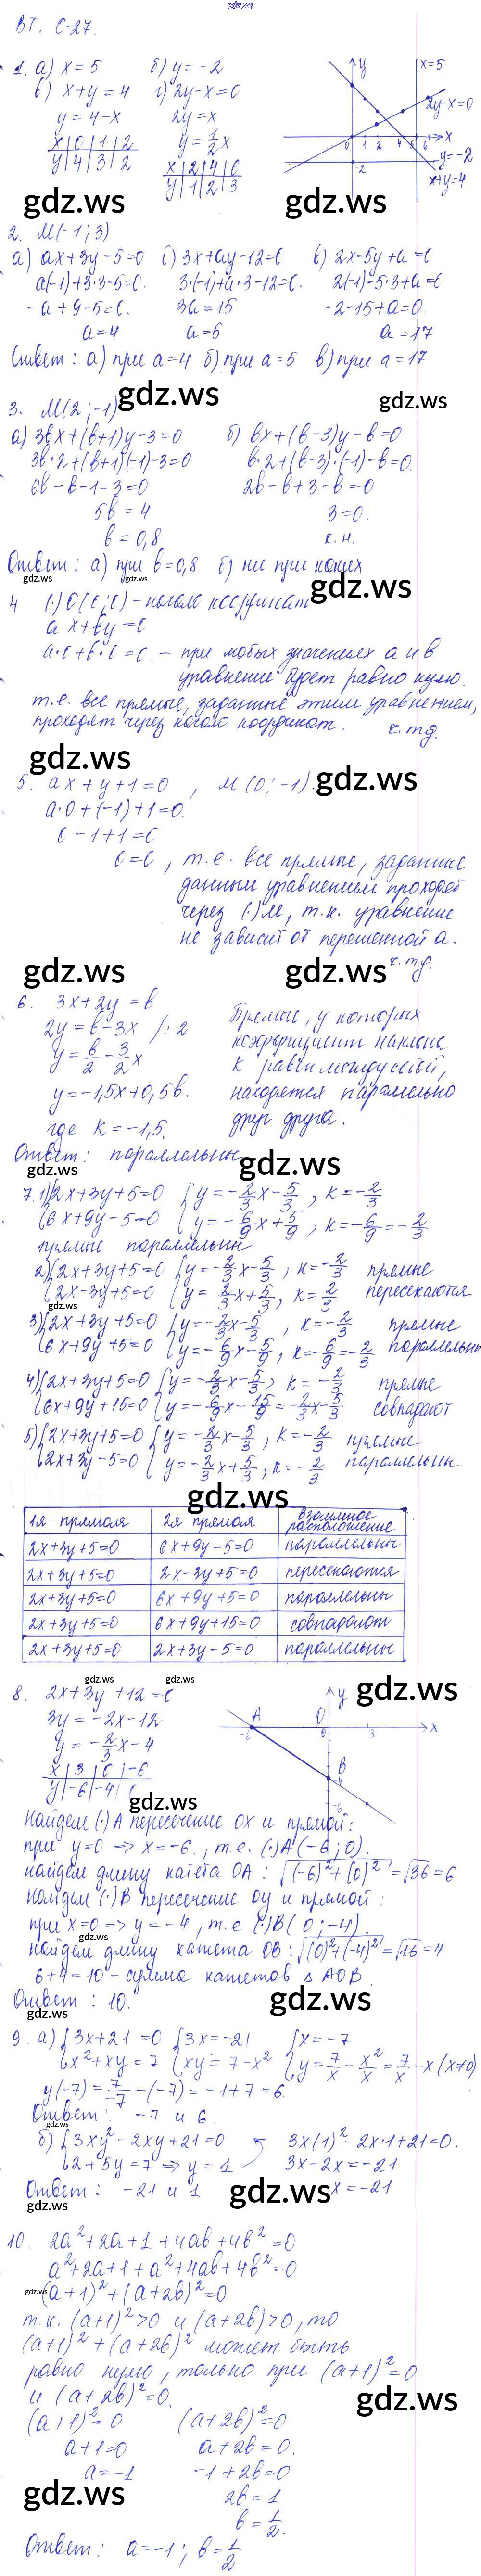 gdz.ws
ВТ. С-27.
1. а) x = 5 б) y = -2
в) x+y = 4 г) 2y-x=0
y = 4-x 2y = x
x 0 1 2 y = 1/2 x
y 4 3 2
x 2 4 6
y 1 2 3
y x=5 2y-x=0 x 0 1 2 4 5 6 -2 y=-2 x+y=4
gdz.ws gdz.ws
2. M(-1; 3)
а) ax+3y-5=0 б) 3x+ay-12=0 в) 2x-5y+a=0
a(-1)+3·3-5=0. 3·(-1)+a·3-12=0. 2(-1)-5·3+a=0
-a+9-5=0. 3a=15 -2-15+a=0.
a=4 a=5 a=17
Ответ: а) при a=4 б) при a=5 в) при a=17
gdz.ws gdz.ws
3. M(2; -1)
а) 3bx+(b+1)y-3=0 б) bx+(b-3)y-b=0
3b·2+(b+1)(-1)-3=0 b·2+(b-3)·(-1)-b=0.
6b-b-1-3=0 2b-b+3-b=0
5b=4 3=0.
b=0,8 к.н.
Ответ: а) при b=0,8 б) ни при каких
gdz.ws gdz.ws gdz.ws
4 (·) O(0;0) - начало координат
ax+by=0
a·0+b·0=0. - при любых значениях a и b
уравнение будет равно нулю.
т.е. все прямые, заданные этим уравнением,
проходят через начало координат. ч.тд.
gdz.ws gdz.ws
5. ax+y+1=0, M(0; -1).
a·0+(-1)+1=0.
0-1+1=0
0=0, т.е. все прямые, заданные
данным уравнением проходят
через (·)M, т.к. уравнение
не зависит от переменной a.
ч.тд.
gdz.ws gdz.ws
6. 3x+2y=b Прямые, у которых
2y=b-3x /:2 коэффициент наклона
y=b/2-3/2x k равен между собой,
y=-1,5x+0,5b. находятся параллельно
где k=-1,5. друг друга.
Ответ: параллельны
gdz.ws gdz.ws
7. 1) {2x+3y+5=0 {y=-2/3x-5/3, k=-2/3
{6x+9y-5=0 {y=-6/9x+5/9, k=-6/9=-2/3
прямые параллельны
2) {2x+3y+5=0 {y=-2/3x-5/3, k=-2/3 прямые
{2x-3y+5=0 {y=2/3x+5/3, k=2/3 пересекаются
gdz.ws
3) {2x+3y+5=0 {y=-2/3x-5/3, k=-2/3 прямые
{6x+9y+5=0 {y=-6/9x-5/9, k=-6/9=-2/3 параллельны
4) {2x+3y+5=0 {y=-2/3x-5/3, k=-2/3 прямые
{6x+9y+15=0 {y=-6/9x-15/9=-2/3x-5/3 совпадают
5) {2x+3y+5=0 {y=-2/3x-5/3, k=-2/3 прямые
{2x+3y-5=0 {y=-2/3x+5/3, k=-2/3 параллельны
gdz.ws gdz.ws
1я прямая 2я прямая взаимное расположение
2x+3y+5=0 6x+9y-5=0 параллельны
2x+3y+5=0 2x-3y+5=0 пересекаются
2x+3y+5=0 6x+9y+5=0 параллельны
2x+3y+5=0 6x+9y+15=0 совпадают
2x+3y+5=0 2x+3y-5=0 параллельны
gdz.ws gdz.ws gdz.ws
8. 2x+3y+12=0
3y=-2x-12
y=-2/3x-4
x 3 0 -6
y -6 -4 0
A O y -6 0 3 x B -4 -6
gdz.ws
Найдем (·)A пересечение OX и прямой:
при y=0 => x=-6., т.е. (·)A(-6; 0).
найдем длину катета OA: √(-6)²+(0)²=√36=6
Найдем (·)B пересечение Oy и прямой:
при x=0 => y=-4, т.е (·)B(0; -4).
gdz.ws
найдем длину катета OB: √(0)²+(-4)²=√16=4
6+4=10 - сумма катетов ΔAOB.
Ответ: 10.
gdz.ws gdz.ws
9. а) {3x+21=0 {3x=-21 {x=-7
{x²+xy=7 {xy=7-x² {y=7/x-x²/x=7/x-x (x≠0)
y(-7)=7/-7-(-7)=-1+7=6.
Ответ: -7 и 6.
gdz.ws
б) {3xy²-2xy+21=0 3x(1)²-2x·1+21=0.
{2+5y=7 => y=1 3x-2x=-21
Ответ: -21 и 1 x=-21
gdz.ws gdz.ws
10. 2a²+2a+1+4ab+4b²=0
a²+2a+1+a²+4ab+4b²=0
gdz.ws
(a+1)²+(a+2b)²=0.
т.к. (a+1)²>0 и (a+2b)>0, то
(a+1)²+(a+2b)² может быть
равно нулю, только при (a+1)²=0
и (a+2b)²=0.
gdz.ws
(a+1)²=0 (a+2b)²=0
a+1=0 a+2b=0.
a=-1 -1+2b=0
gdz.ws
2b=1
b=1/2.
Ответ: a=-1; b=1/2